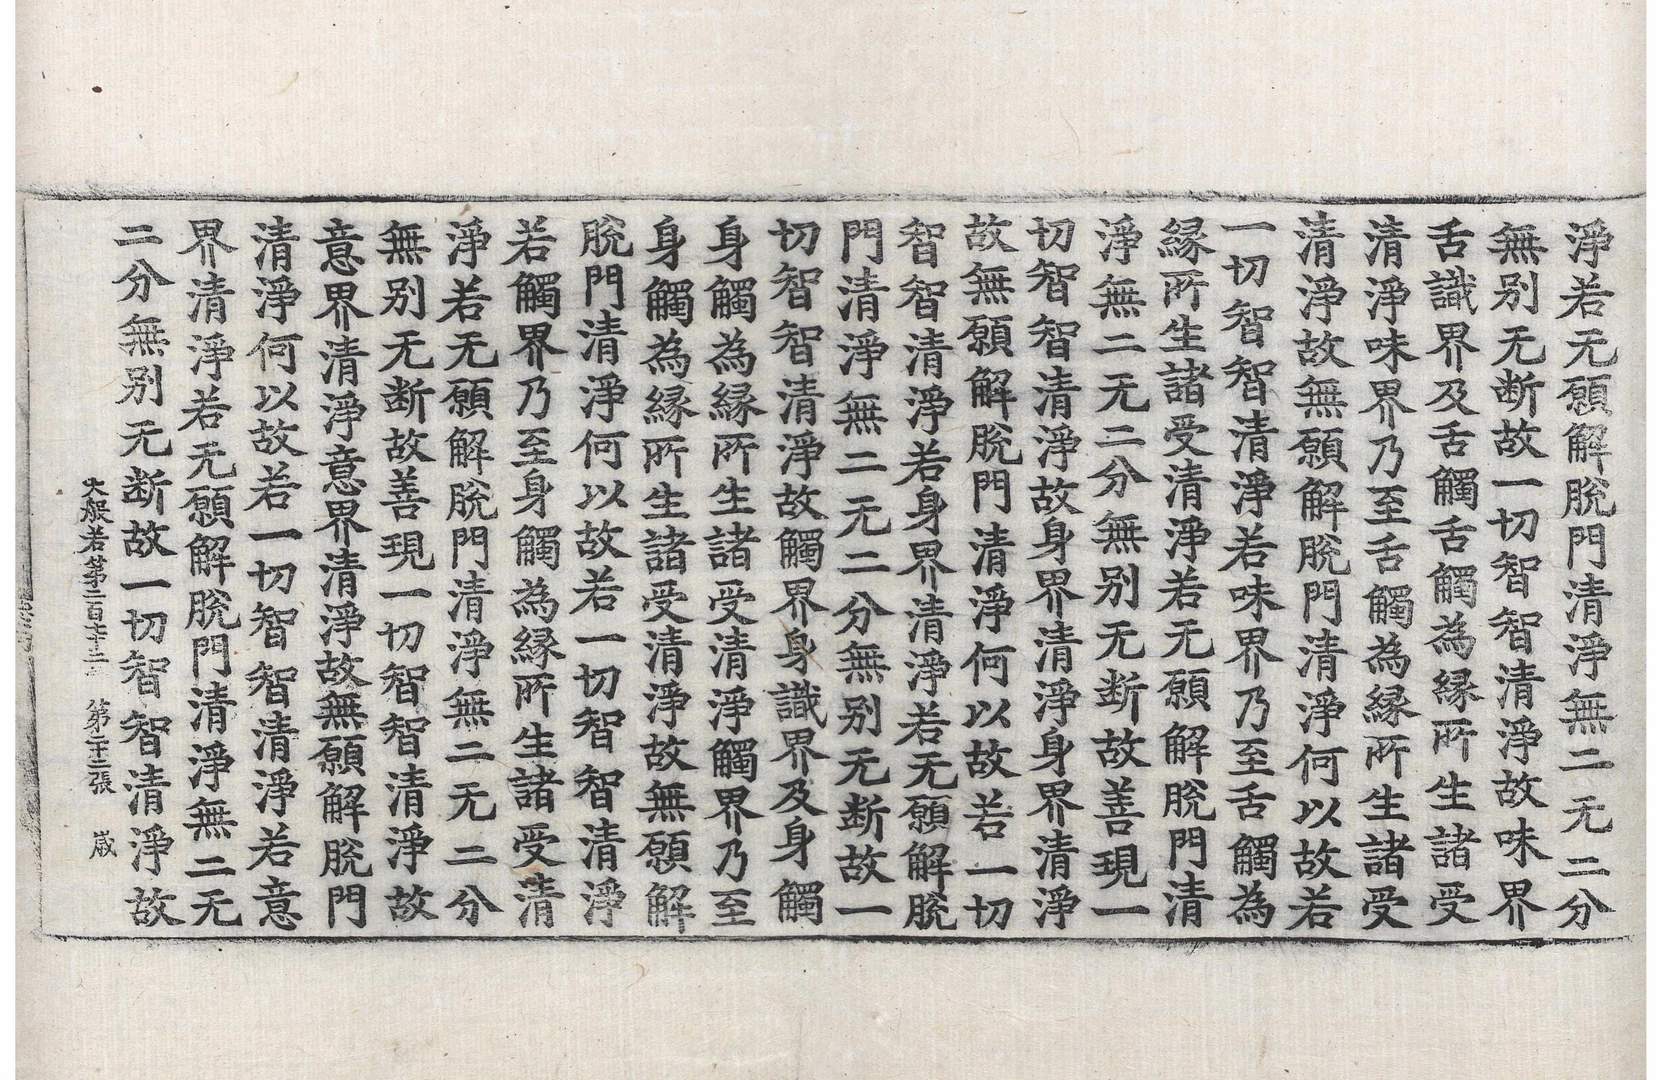 淨若无願解脫門清淨無二无二分
無别无断故一切智智清淨故味界
舌識界及舌觸舌觸為縁所生諸受
清淨味界乃至舌觸為縁所生諸受
清淨故無願解脫門清淨何以故若
一切智智清淨若味界乃至舌觸為
縁所生諸受清淨若无願解脫門清
淨無二无二分無别无断故善現一
切智智清淨故身界清淨身界清淨
故無願解脫門清淨何以故若一切
智智清淨若身界清淨若无願解脫
門清淨無二无二分無别无断故一
切智智清淨故觸界身識界及身觸
身觸為縁所生諸受清淨觸界乃至
身觸為縁所生諸受清淨故無願解
脫門清淨何以故若一切智智清淨
若觸界乃至身觸為縁所生諸受清
淨若无願解脫門清淨無二无二分
無别无断故善現一切智智清淨故
意界清淨意界清淨故無願解脫門
清淨何以故若一切智智清淨若意
界清淨若无願解脫門清淨無二无
二分無别无断故一切智智清淨故
大般若第二百六十二 第二十二張 歲